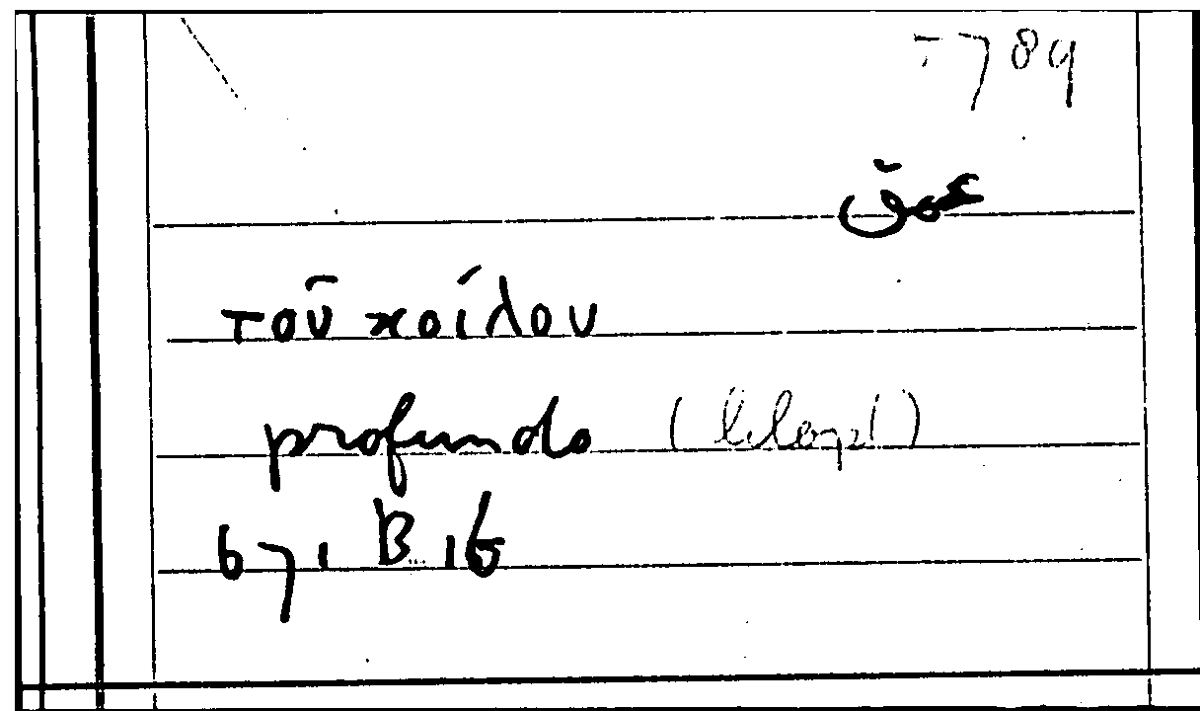 789
عمق
τοῦ κοίλου
profundo
671 B 16